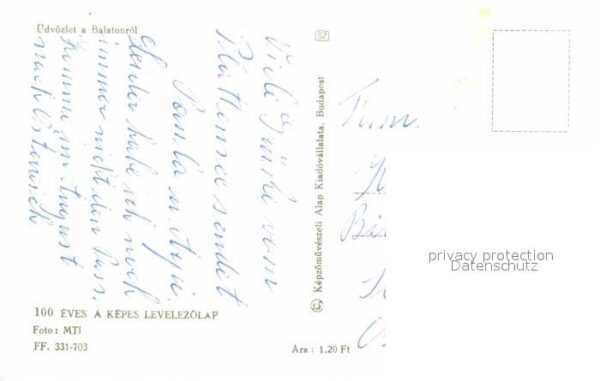 Üdvözlet a Balatonról
Viele Grüße vom
Plattensee sendet
Leider habe ich noch
immer nicht den Pass.
Komme im August
nach Österreich
100 ÉVES A KÉPES LEVELEZŐLAP
Foto: MTI
FF. 331-703
Ára: 1,20 Ft
© Képzőművészeti Alap Kiadóvállalata, Budapest
Fam.
privacy protection
Datenschutz